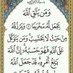 وَمَن يَتَّقِ اللَّهَ
يَجْعَل لَّهُ مَخْرَجًا وَيَرْزُقْهُ
مِنْ حَيْثُ لَا يَحْتَسِبُ وَمَن يَتَوَكَّلْ
عَلَى اللَّهِ فَهُوَ حَسْبُهُ إِنَّ اللَّهَ
بَالِغُ أَمْرِهِ قَدْ جَعَلَ اللَّهُ
لِكُلِّ شَيْءٍ قَدْرًا